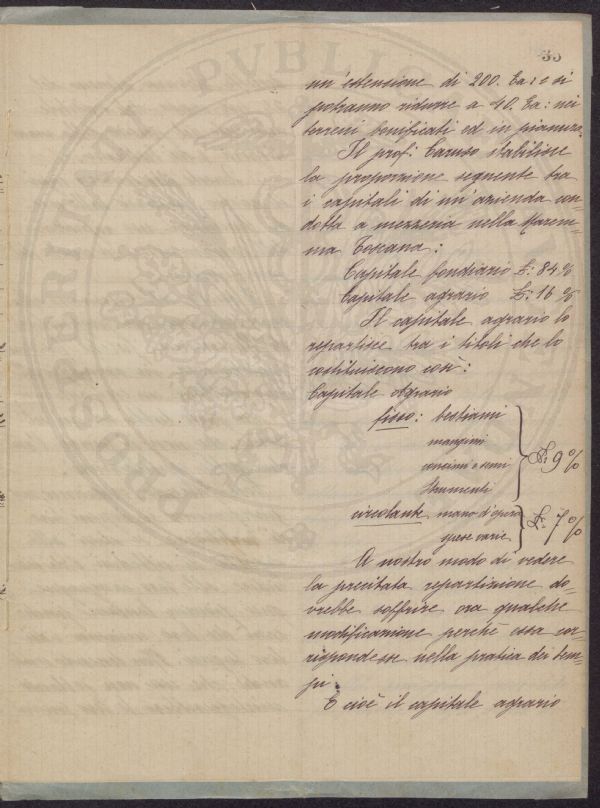 35
un' estensione di 200. Ea: e si
potranno ridurre a 40. Ea: nei
terreni bonificati ed in pianura.
Il prof: Caruso stabilisce
la proporzione seguente tra
i capitali di un' azienda con=
dotta a mezzeria nella Marem=
ma Toscana:
Capitale fondiario L: 84%
Capitale agrario L: 16 %
Il capitale agrario lo
repartisce tra i titoli che lo
costituiscono così:
Capitale Agrario
fisso: bestiami
mangimi
concimi e semi
Strumenti
L: 9%
circolante mano d'opera
spese varie
L: 7%
A nostro modo di vedere
la precitata repartizione do=
vrebbe soffrire ora qualche
modificazione perchè essa cor=
rispondesse nella pratica dei tem=
pi.
E cioè il capitale agrario
PROSPERITATI PVBLICAE